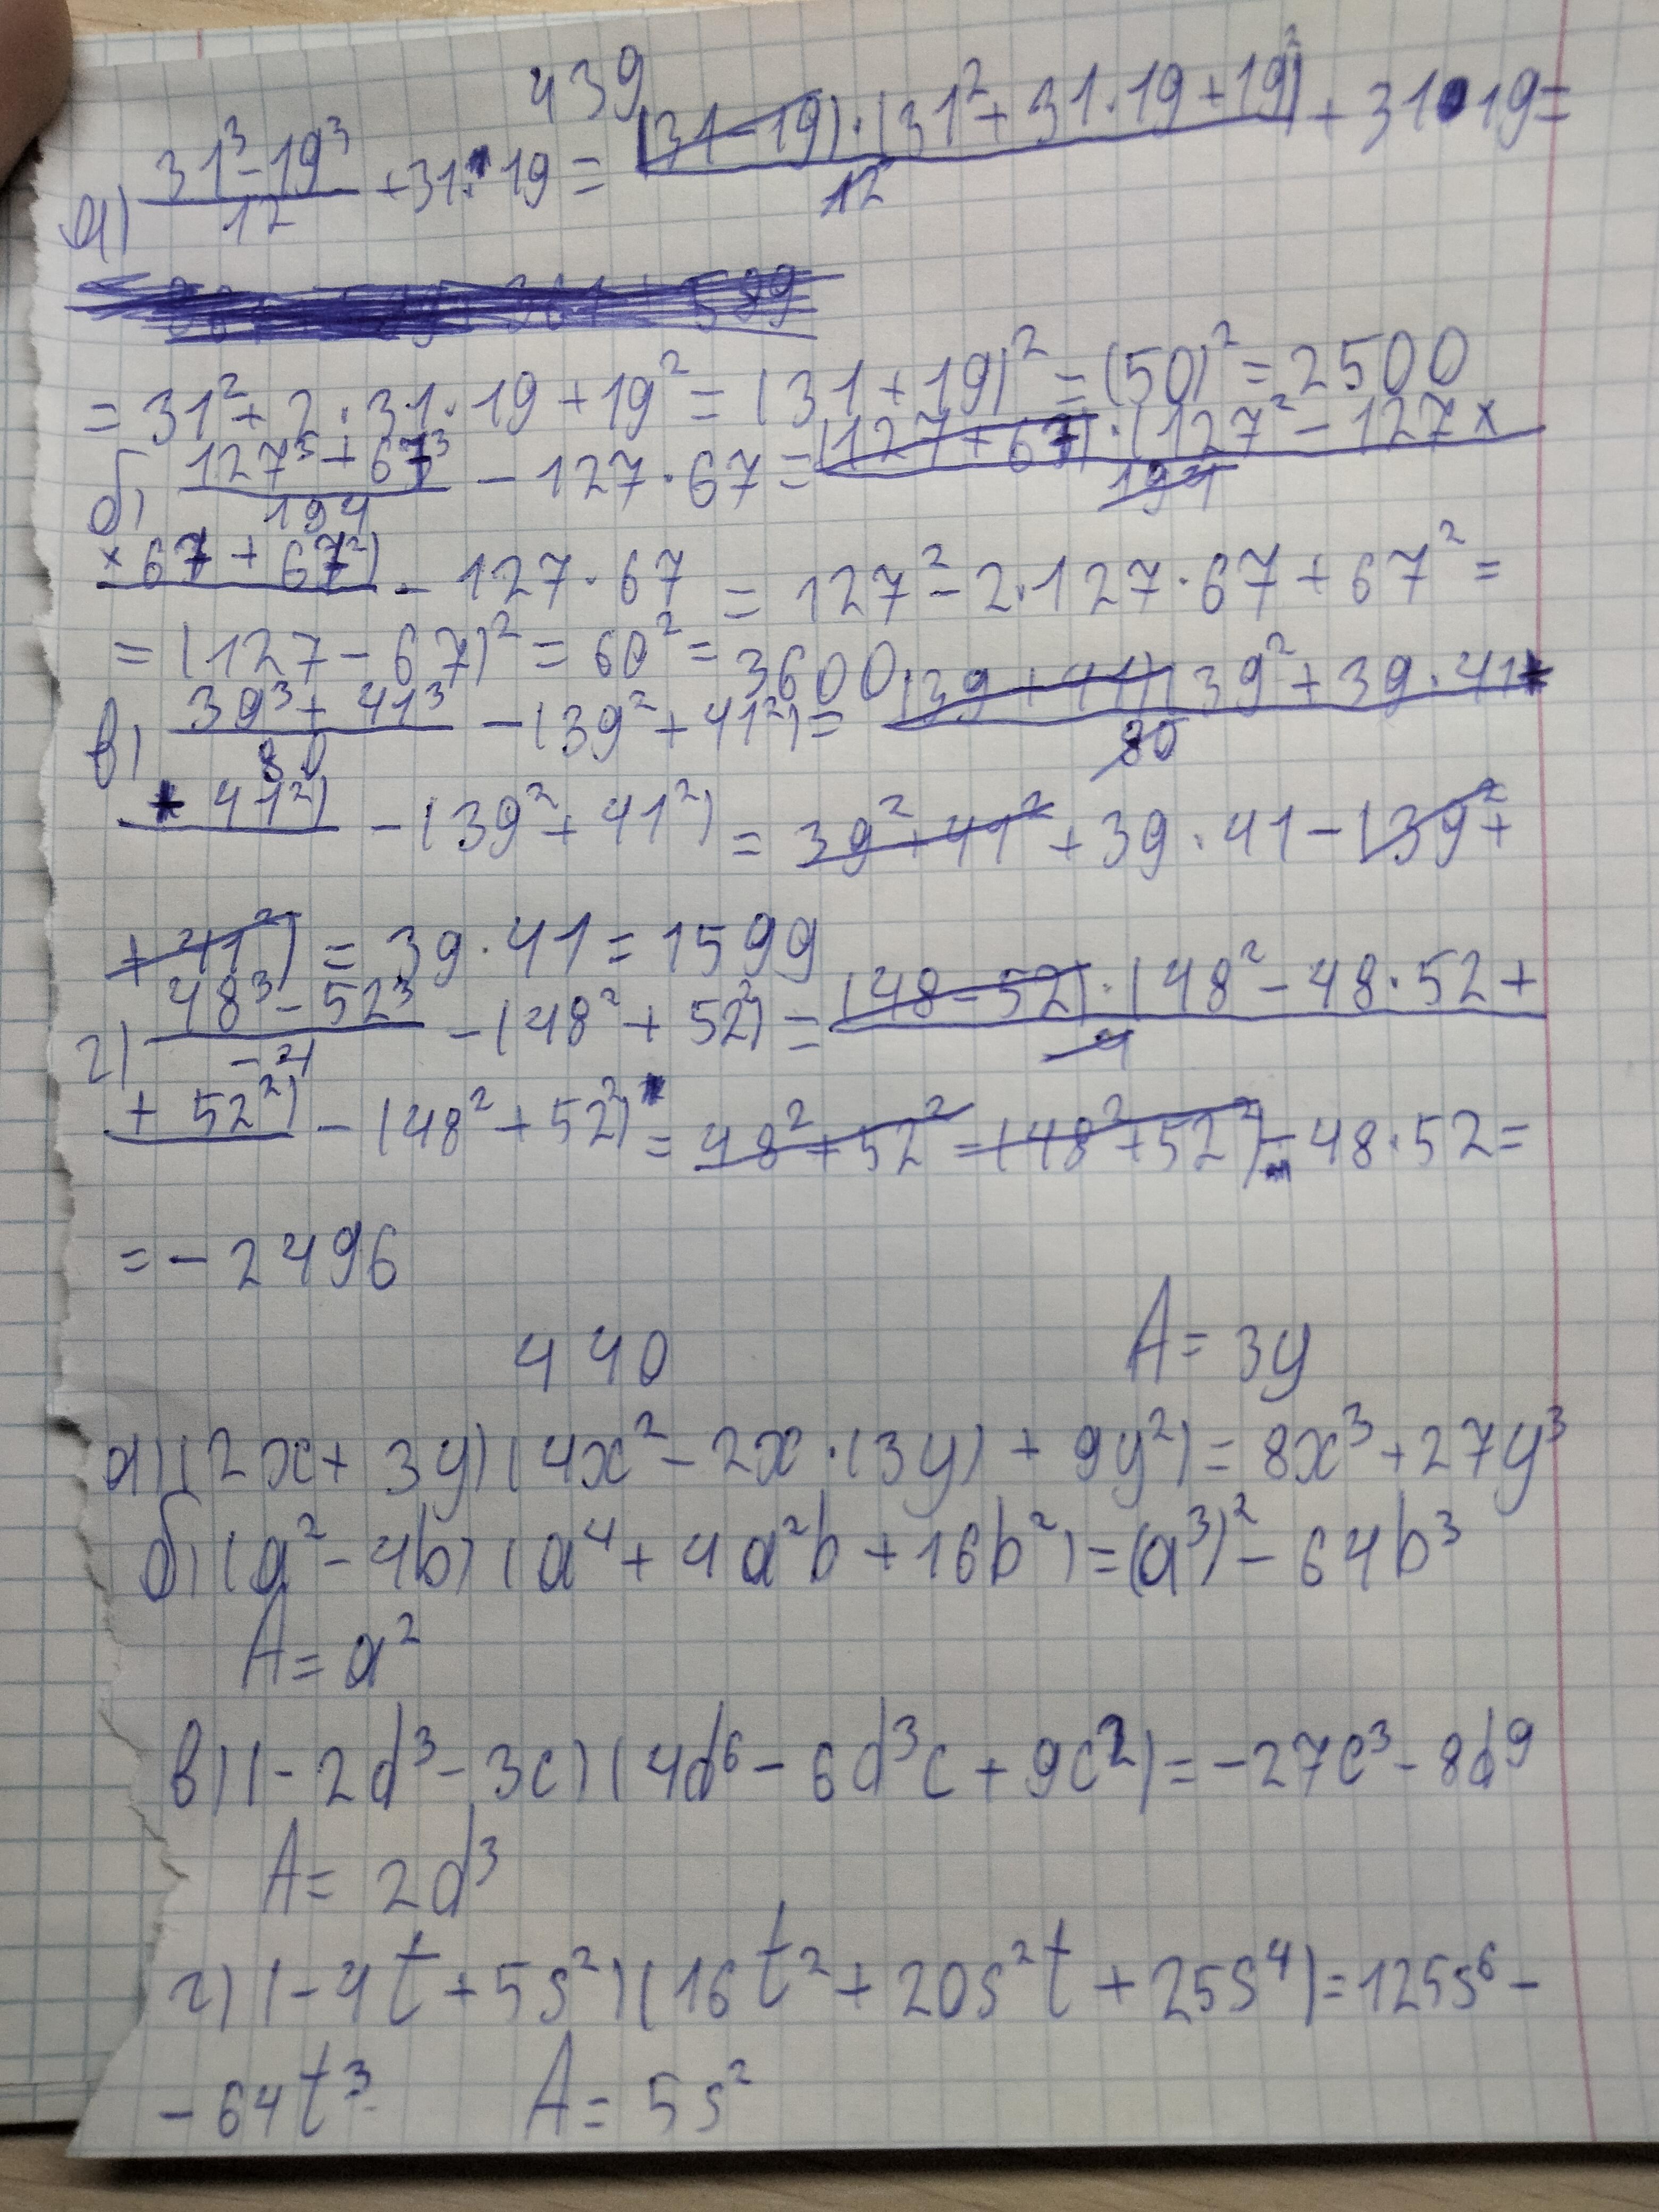 439
а) (31³-19³)/12 +31·19 = ((31-19)·(31²+31·19+19²))/12 + 31·19=
= 31²+2·31·19+19² = (31+19)² = (50)² = 2500
б) (127³+67³)/194 - 127·67 = ((127+67)·(127²-127×
×67+67²))/194 - 127·67 = 127²-2·127·67+67² =
= (127-67)² = 60² = 3600
в) (39³+41³)/80 -(39²+41²)= ((39+41)(39²+39·41
41²))/80 -(39²+41²) = 39²+41²+39·41-(39²+
+41²) = 39·41=1599
г) (48³-52³)/-4 -(48²+52²)= ((48-52)·(48²-48·52+
+52²))/-4 -(48²+52²) = 48²+52²-(48²+52²)-48·52=
=-2496
440
A=3y
а) (2x+3y)(4x²-2x·(3y)+9y²)=8x³+27y³
б) (a²-4b)(a⁴+4a²b+16b²)=(a³)²-64b³
A=a²
в) (-2d³-3c)(4d⁶-6d³c+9c²)=-27c³-8d⁹
A=2d³
г) (-4t+5s²)(16t²+20s²t+25s⁴)=125s⁶-
-64t³ A=5s²